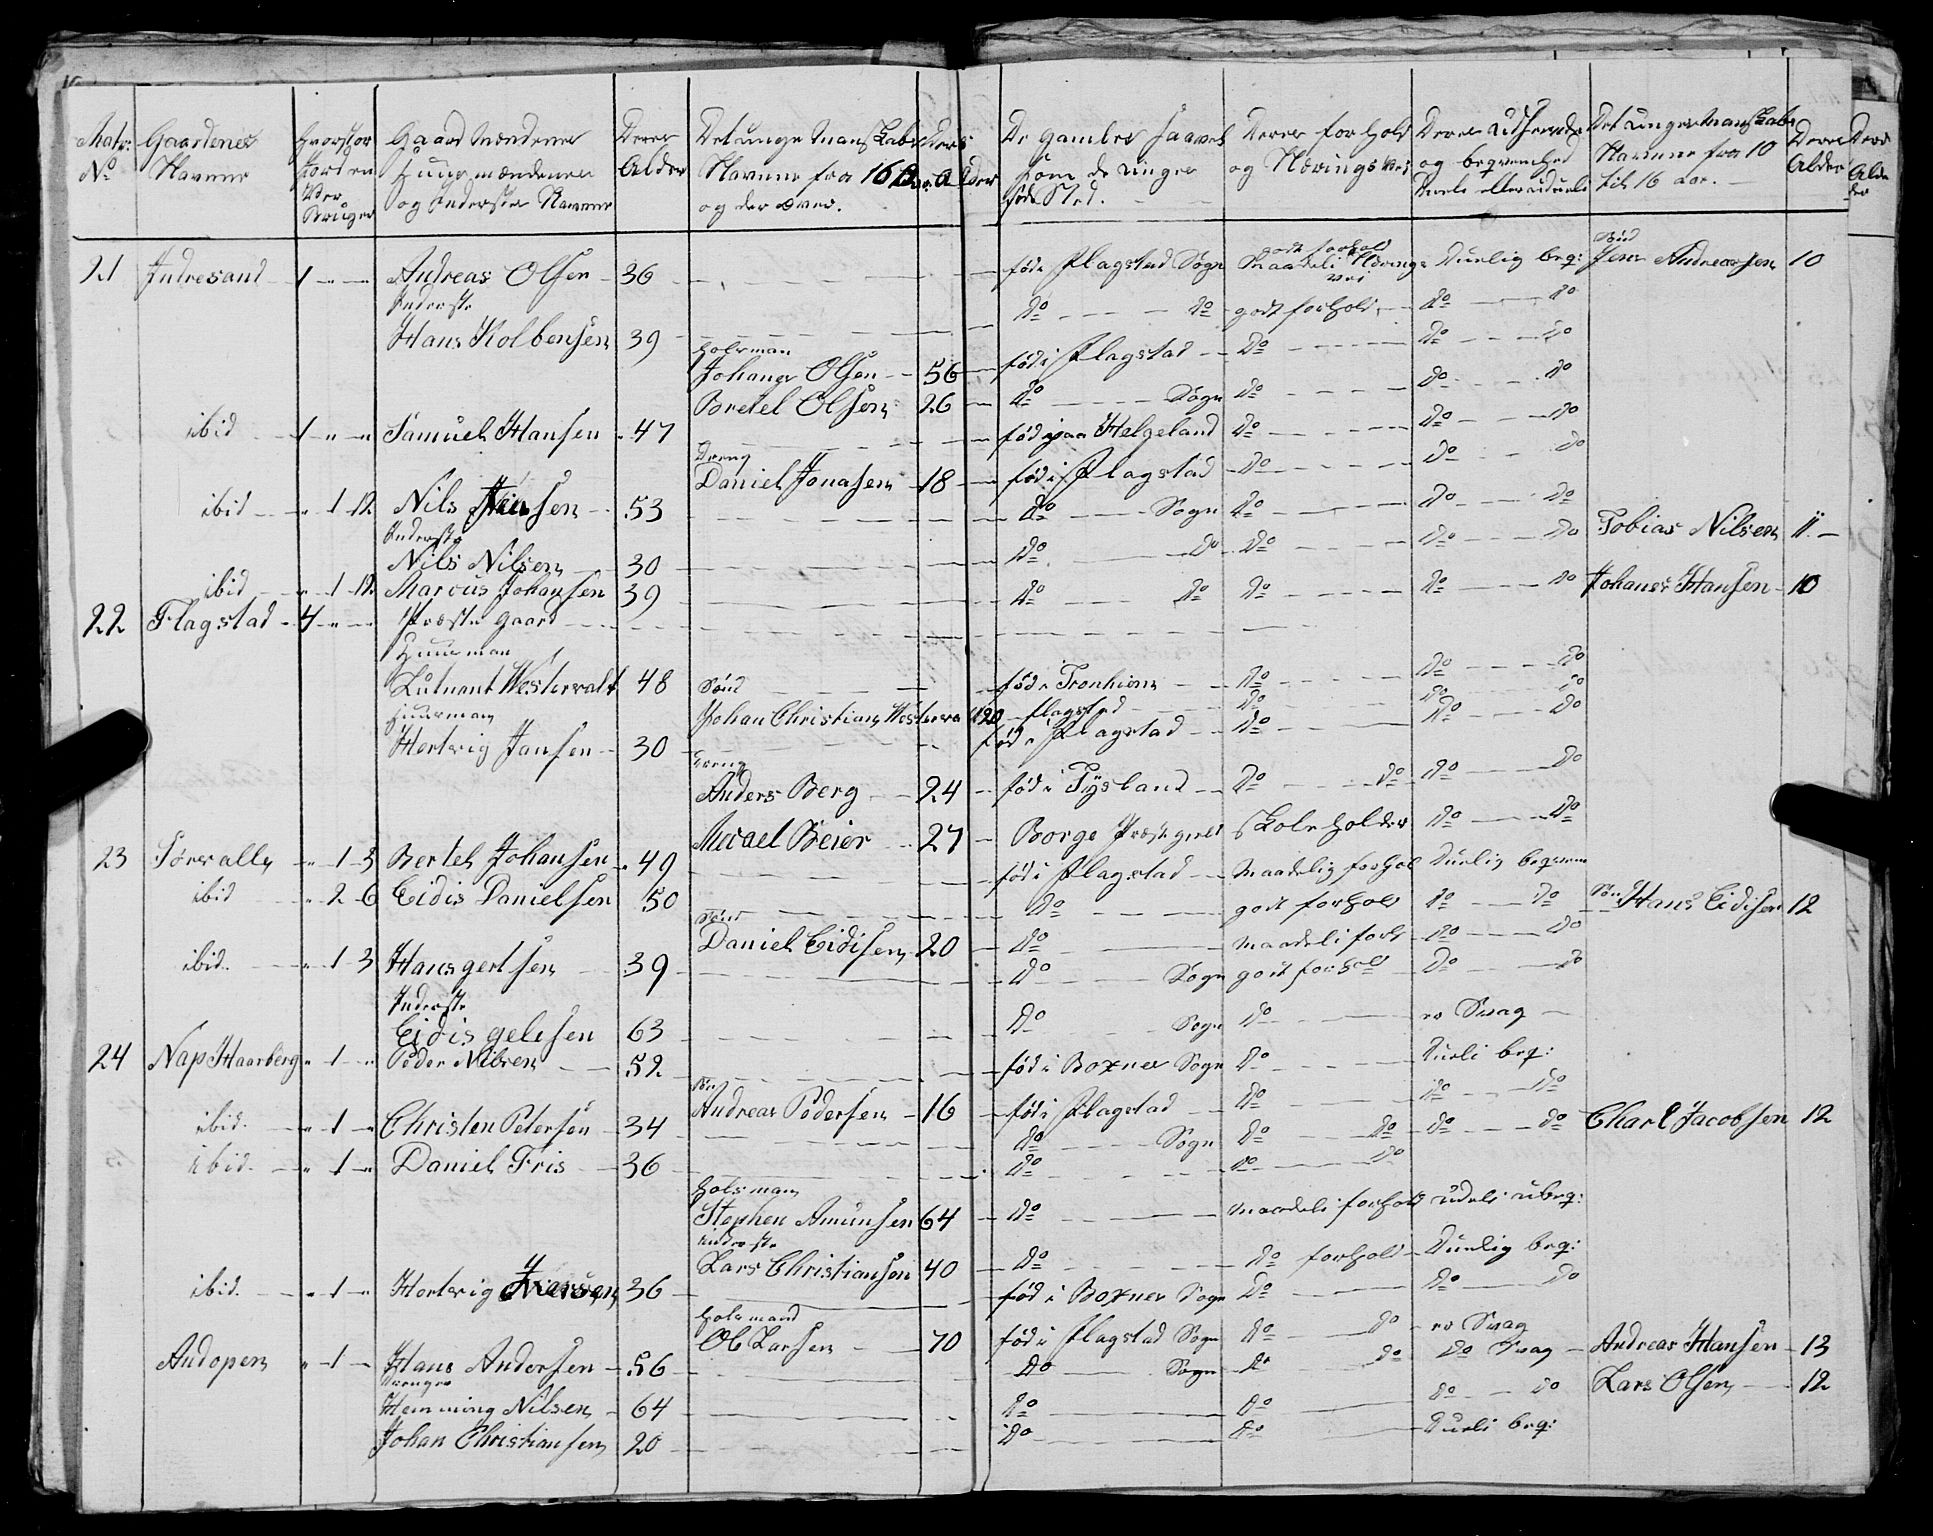 Matr: No | Gaardenes Navne | Hvor stor Jord en Vær Bruger | Gaard Mændenes Huusmændenes og Inderstes Navne | Deres Alder | Det unge Mans[kab] Navne fra 16 aar og der over. | Deres Alder | De gamles saavel som de unges føde Sted. | Deres forhold og Nærings Vei | Deres Udseende og beqvemhed Duelig eller uduelig | Det unge Manskabs Navne fra 10 til 16 aar. | Deres Alder
21 | Indresand | 1 | Andreas Olsen | 36 | | | fød i Flagstad Sogn | godt forhold Maadeli Nærings vei | Duelig beq: | Sønd Jens Andreassen | 10
Inderste | Do Do | godt forhold | Do Do
Hans Kolbensen | 39
holsman Johanes Olsen | 56 | fød i Flagstad | Do | Do Do
Bretel Olsen | 26 | Do Sogn | Do | Do Do
ibid | 1 | Samuel Hansen | 47 | | | fød paa Helgeland | Do | Do Do
Dreng Daniel Jonasen | 18 | fød i Flagstad | Do | Do Do
ibid | 1 12 | Nils Jensen | 53 | | | Do Sogn | Do | Do Do | Tobias Nilsen | 11
Inderste Nils Nilsen | 30 | Do Do | Do | Do Do
ibid | 1 12 | Marcus Johansen | 39 | | | Do Do | Do | Do Do | Johanes Hansen | 10
22 | Flagstad | 4 | Præste Gaard
Huusman
Lutnant Westerwalt | 48 | | | fød i Tronhiem | Do | Do Do
Sønd Johan Christian Westerwa | 20 | Flagstad | Do | Do Do
Huusman Hertvig Jansen | 30 | | | fød i Flagstad | Do | Do Do
Dreng Anders Berg | 24 | fød i Tysland | Do Do | Do Do
Micael Beier | 27 | Borge Præstegield | Skoleholder | Do Do
23 | Sørvally | 1 3 | Bertel Johansen | 49 | | | fød i Flagstad | Maadelig forhol | Duelig beqvem
ibid | 2 6 | Eidis Danielsen | 50 | | | Do | godt forhold | Do Do | Søn Hans Eidisen | 12
Sønd Daniel Eidisen | 20 | Do | maadeli forh | Do Do
ibid. | 1 3 | Hans gertsen | 39 | | | Do Sogn | godt forhold | Do Do
Inderste
Eidis gelesen | 63 | | | Do Sogn | Do | er Svag
24 | Nap Haarberg | 1 | Peder Nilsen | 52 | | | fød i Boxnes Sogn | Do | Dueli beq:
Søn Andreas Pedersen | 16 | fød i Flagstad | Do | Do Do
ibid. | 1 | Christen Petersen | 34 | | | Do Sogn | Do Do | Do Do | Charl Jacobsen | 12
ibid. | 1 | Daniel Fris | 36 | | | Do | Do Do
holsman
Stephen Amunsen | 64 | Do | maadeli forhold | udeli ubeq:
Inderste Lars Christiansen | 40 | Do | Do forhold | Duelig beq:
ibid. | 1 | Hertvig Iversen | 36 | | | fød i Boxnes Sogn | Do | Do Do
holsmand Ole Larsen | 70 | fød i Flagstad Sogn | Do Do | er Svag
Andopen | 1 | Hans Andersen | 56 | | | Do Sogn | Do Do | Do Svag | Andreas Hansen | 13
Drenge Hemming Nilsen | 64 | | | Do | Do | Do Do | Lars Olsen | 12
Johan Christiansen | 20 | | | Do | Do | Dueli beq: